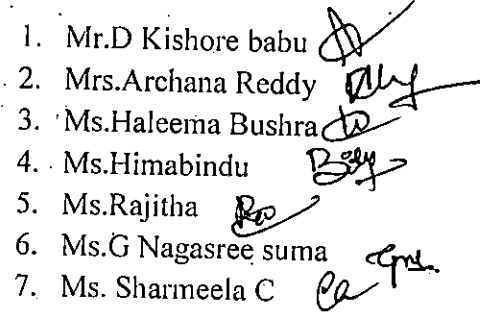 1. Mr.D Kishore babu
2. Mrs.Archana Reddy
3. Ms.Haleema Bushra
4. Ms.Himabindu
5. Ms.Rajitha
6. Ms.G Nagasree suma
7. Ms. Sharmeela C